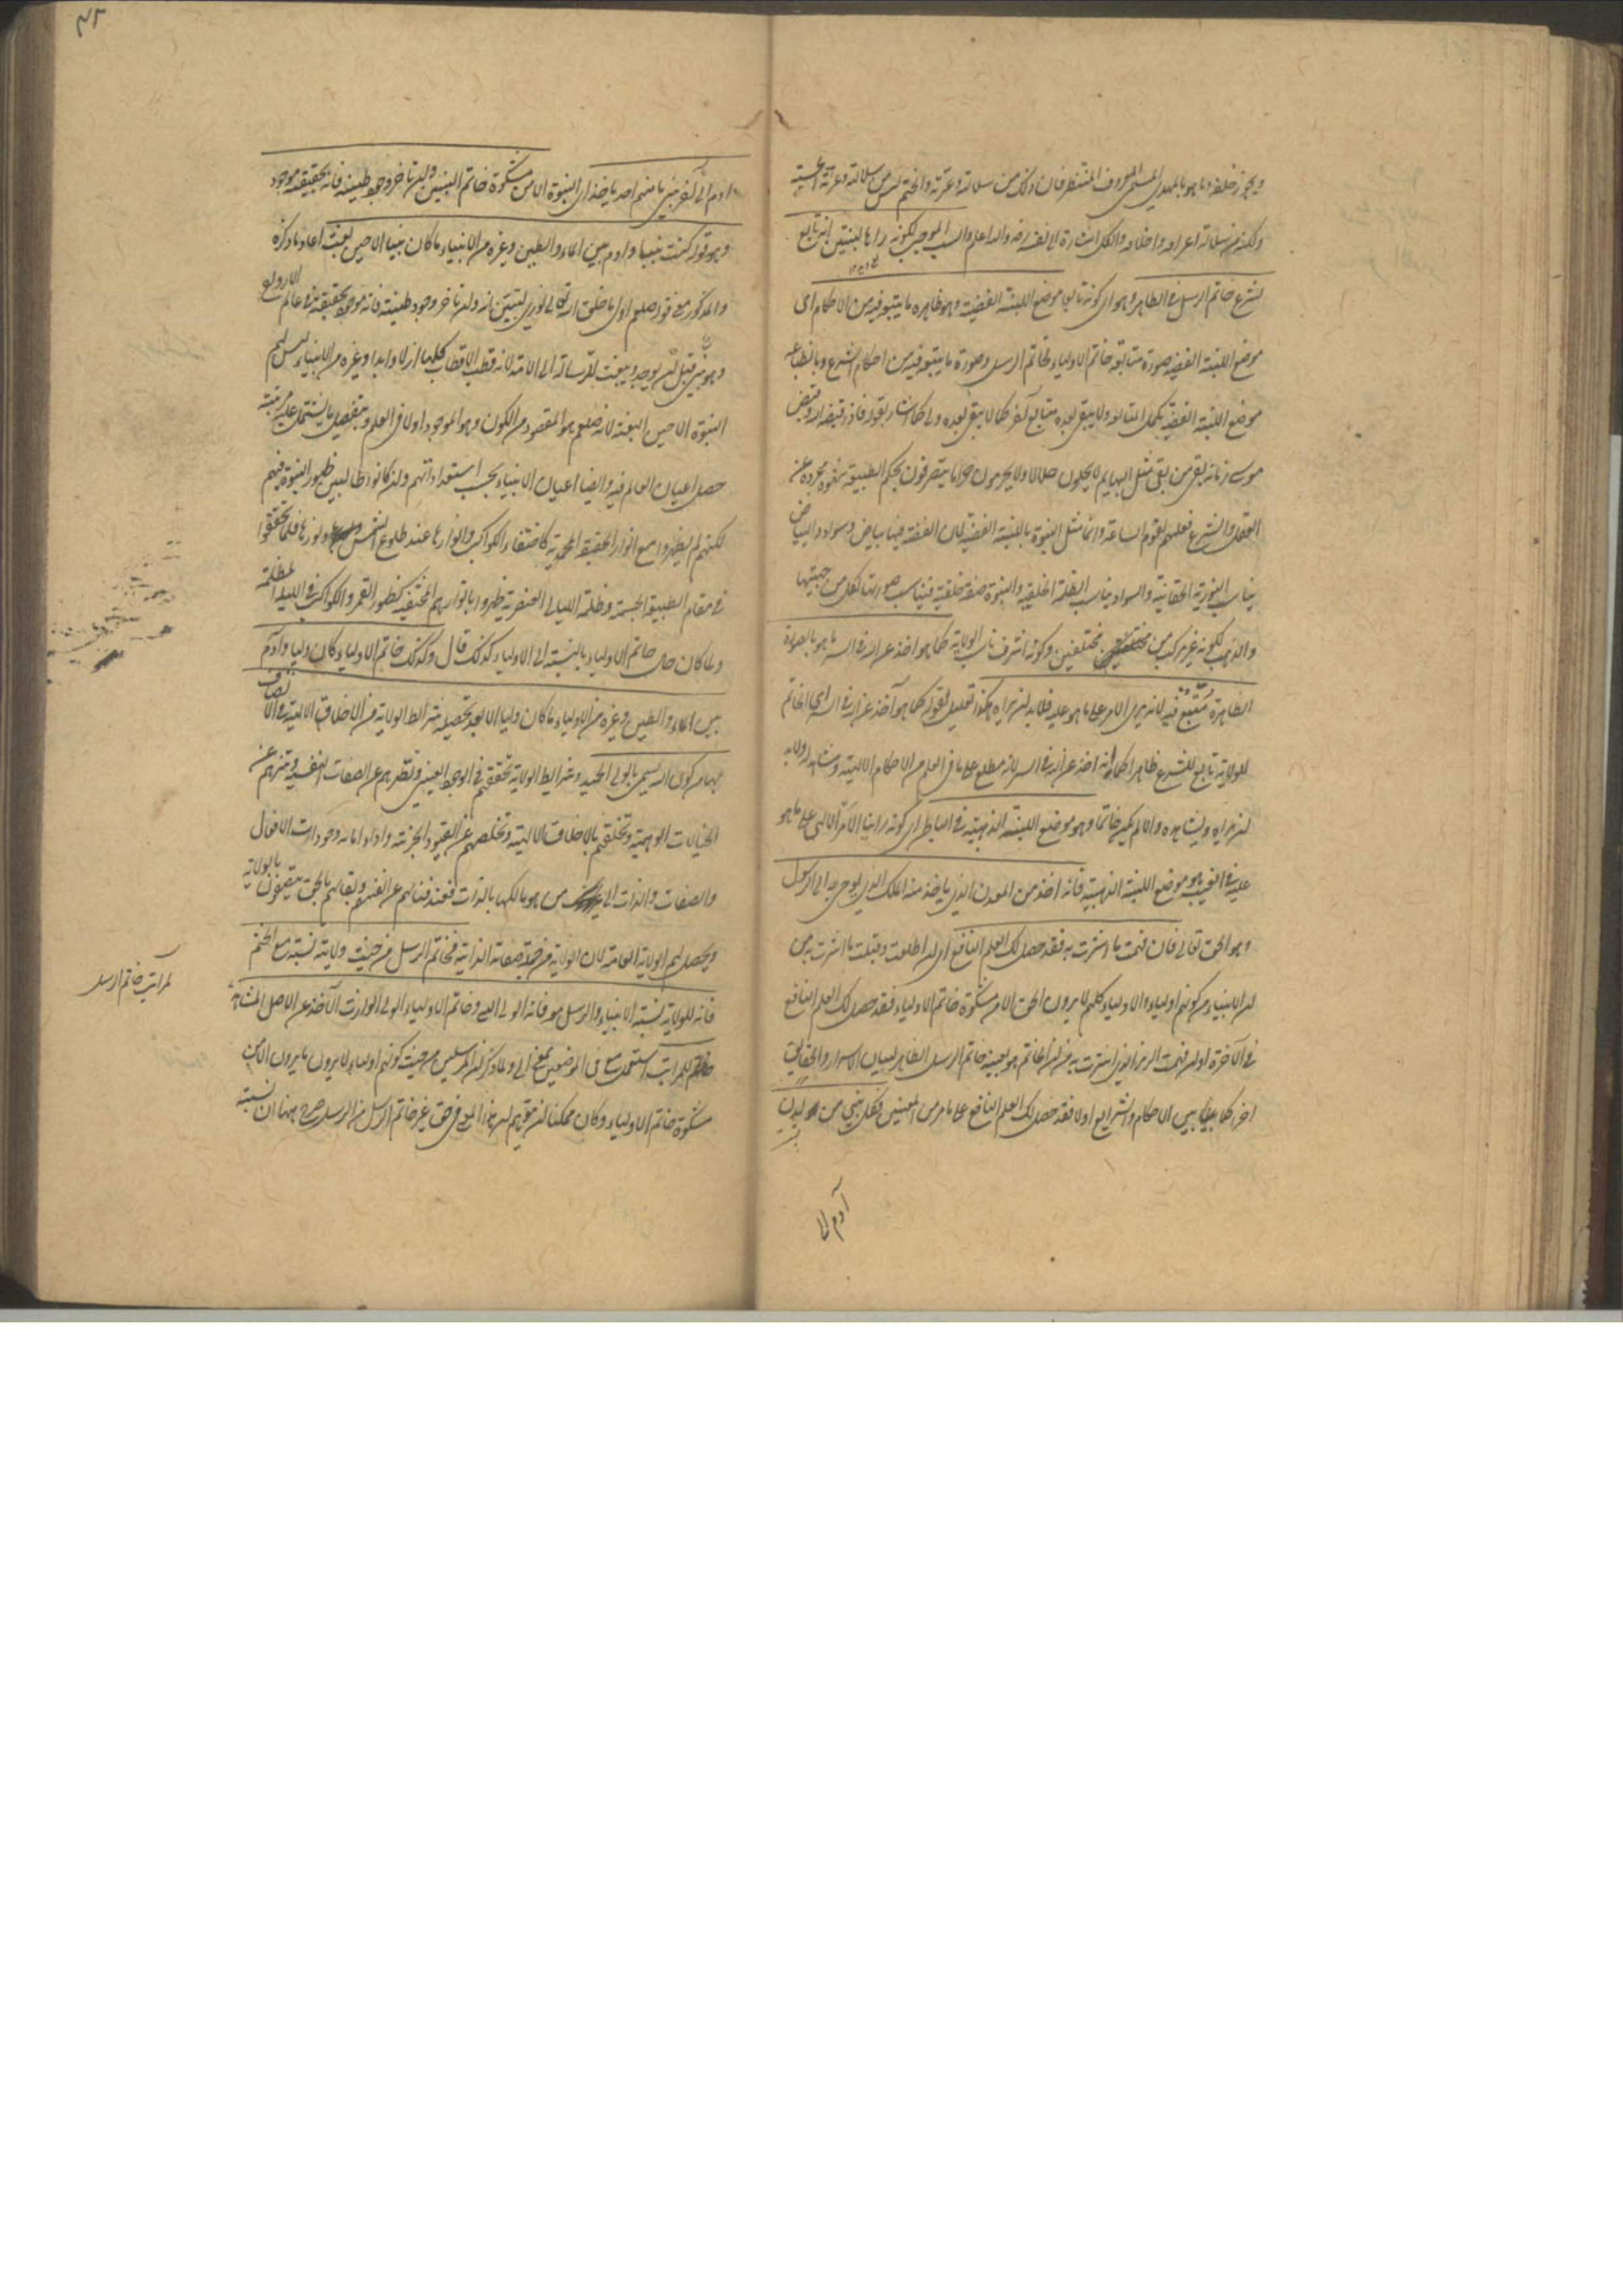 ولكنه من سلالة اعراقه واخلاقه والكل اشارة الى نفسه رضه والله اعلم والسبب الموجب لكونه رآها لبنتين انه تابع
لشرع خاتم الرسل في الظاهر وهو اى كونه تابعا موضع اللبنة الفضية وهو ظاهره وما يتبعه فيه من الاحكام اى
موضع اللبنة الفضية صورة متابعة خاتم الاولياء لخاتم الرسل وصورة ما يتبعه فيه من احكام الشرع وبانطباعه
موضع اللبنة الفضية يكمل المتابعة ولا يبقى بعده متابع آخر كما لا يبقى بعده ولى كما اشار بقوله فاذا قبضه الله وقبض
مومنى زمانه بقى من بقى مثل البهايم لا يحلون حلالا ولا يحرمون حراما يتصرفون بحكم الطبيعة شهوة مجردة عن
العقل والشرع فعليهم تقوم الساعة وانما مثل النبوة باللبنة الفضية لان الفضة فيها بياض وسواد والبياض
يناسب النورية الحقانية والسواد يناسب الظلمة الخلقية والنبوة صفة خلقية
والذهب لكونه غير مركب من مختلفين وكونه اشرف ناسب الولاية كما هو آخذ عن الله في السر ما هو بالصورة
الظاهرة متبع فيه لانه يرى الامر على ما هو عليه فلا بد ان يراه هكذا تعليل لقوله كما هو آخذ عن الله في السر اى الخاتم
للولاية تابع للشرع ظاهرا كما انه آخذ عن الله في السر لانه مطلع على ما فى العلم من الاحكام الالهية ومشاهد له ولا بد
ان يراه ويشاهده والا لم يكن خاتما وهو موضع اللبنة الذهبية في الباطن اى كونه رائيا الامر الالهى على ما هو
عليه في الغيب هو موضع اللبنة الذهبية فانه اخذ من المعدن الذى ياخذ منه الملك الذى يوحى به الى الرسول
وهو الحق تعالى فان فهمت ما اشرت به فقد حصل لك العلم النافع اى ان اطلعت وقبلت ما اشرت به من
ان الانبياء من كونهم اولياء والاولياء كلهم لا يرون الحق الا من مشكوة خاتم الاولياء فقد حصل لك العلم النافع
في الآخرة او ان فهمت الرمز الذى اشرت به من ان الخاتم هو بعينه خاتم الرسل الظاهر لبيان الاسرار والحقايق
آخرا كما بين الاحكام والشرايع اولا فقد حصل لك العلم النافع على ما مر من المعنيين فكل نبى من لدن
آدم الى
آدم الى آخر نبى ما منهم احد ياخذ اى النبوة الا من مشكوة خاتم النبيين وان تاخر وجود طينته فانه بحقيقته موجود
وهو قوله كنت نبيا وادم بين الماء والطين وغيره من الانبياء ما كان نبيا الا حين بعث اعاد ما ذكره
والمذكور مع قوله صلعم اول ما خلق الله تعالى نورى ليتبين انه وان تاخر وجود طينته فانه موجود بحقيقته في عالم الارواح
وهو نبى قبل ان يوجد ويبعث للرسالة الى الامة لانه قطب الاقطاب كلها ازلا وابدا وغيره من الانبياء ليس لهم
النبوة الا حين البعثة لانه صلعم هو المقصود من الكون وهو الموجود اولا فى العلم وبتفصيل ما يشتمل عليه مرتبته
حصل اعيان العالم فيه وايضا اعيان الانبياء بحسب استعداداتهم وان كانوا طالبين ظهور النبوة فيهم
لكنهم لم يظهروا مع انوار الحقيقة المحمدية كاختفاء الكواكب وانوارها عند طلوع الشمس ونورها فلما تحققوا
في مقام الطبيعة الجسمية وظلمة الليالى العنصرية ظهروا بانوارهم المختفية كظهور القمر والكواكب في الليلة المظلمة
ولما كان حال خاتم الاولياء بالنسبة الى الاولياء كذلك قال وكذلك خاتم الاولياء كان وليا وادم
بين الماء والطين وغيره من الاولياء ما كان وليا الا بعد تحصيله شرايط الولاية من الاخلاق الالهية في الاتصاف
بها من كون الله يسمى بالولى الحميد وشرايط الولاية تحققهم في الوجود العينى وتطهرهم عن الصفات النفسية وتنزههم عن
الخيالات الوهمية وتخلقهم بالاخلاق الالهية وتخلصهم عن القيود الجزئية واداء امانة وجودات الافعال
والصفات والذات الى من هو مالكها بالذات فعند فنائهم عن انفسهم وبقائهم بالحق يتصفون بالولاية
ويحصل لهم الولاية العامة لان الولاية من جملة صفاته الذاتية فخاتم الرسل من حيث ولايته نسبته مع الختم
للولاية نسبة الانبياء والرسل معه فانه الولى الرسول النبى وخاتم الاولياء الولى الوارث الآخذ عن الاصل المشاهد
للمراتب استعمل مع فى الموضعين بمعنى الى ولما ذكر ان المرسلين من حيث كونهم اولياء لا يرون ما يرون الا من
مشكوة خاتم الاولياء وكان ممكنا ان يتوهم ان هذا المعنى فى حق غير خاتم الرسل من الرسل صرح ههنا ان نسبته
لمراتب خاتم الرسل